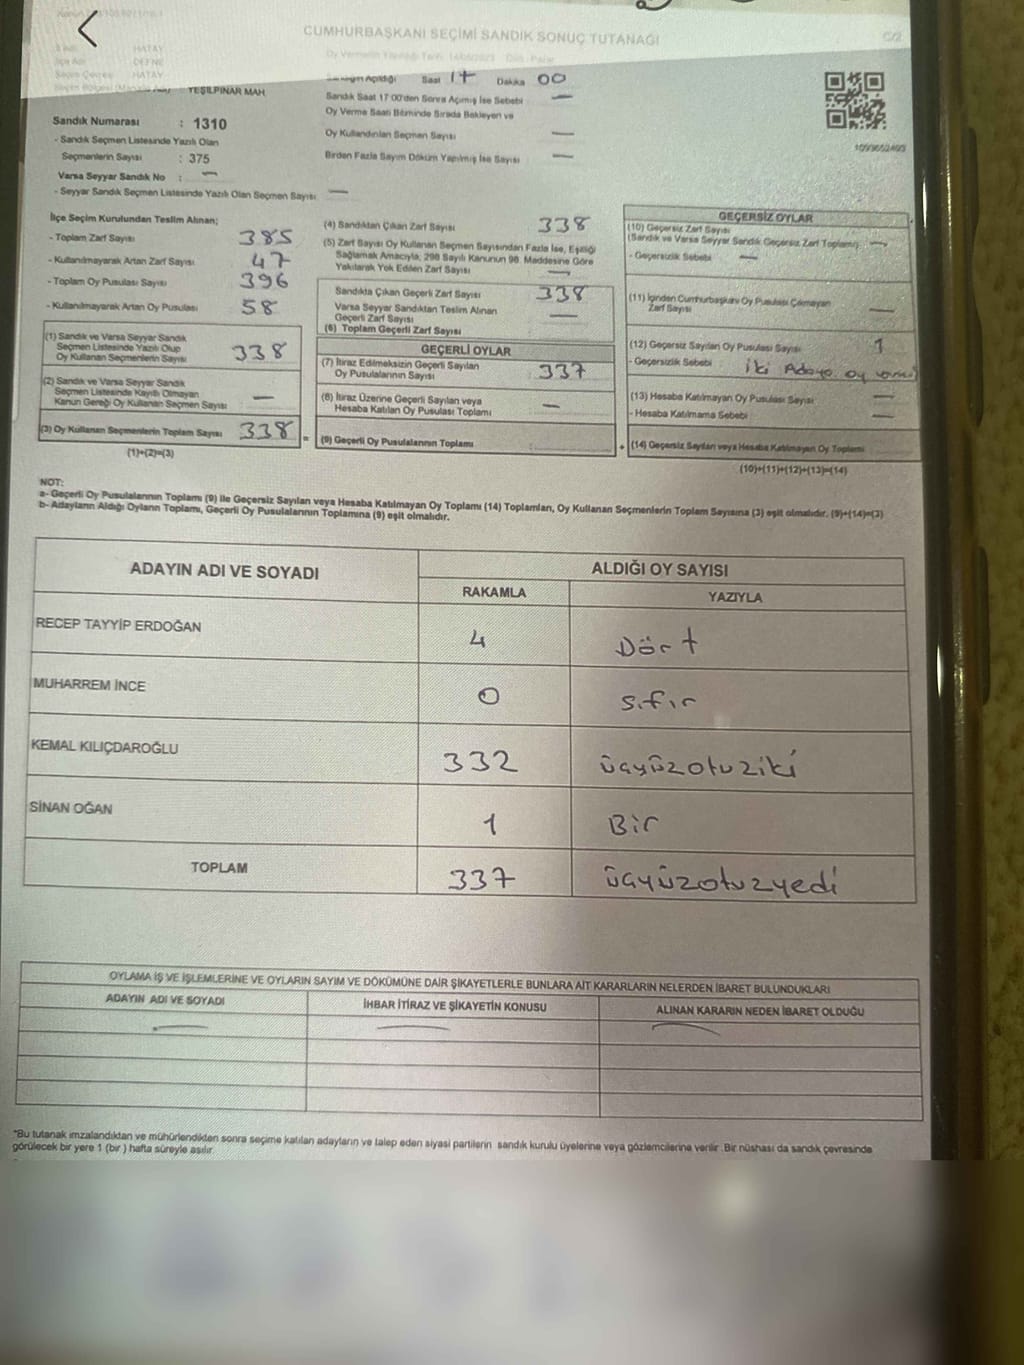 CUMHURBAŞKANI SEÇİMİ SANDIK SONUÇ TUTANAĞI
C/2
HATAY
İlçe Adı DEFNE
Seçim Çevresi HATAY
YEŞİLPINAR MAH.
Sandık Numarası : 1310
- Sandık Seçmen Listesinde Yazılı Olan
Seçmenlerin Sayısı : 375
Varsa Seyyar Sandık No : —
- Seyyar Sandık Seçmen Listesinde Yazılı Olan Seçmen Sayısı —
Açıldığı Saat 17 Dakika 00
Sandık Saat 17:00'den Sonra Açılmış İse Sebebi —
Oy Verme Saati Bitiminde Sırada Bekleyen ve
Oy Kullandırılan Seçmen Sayısı —
Birden Fazla Sayım Döküm Yapılmış İse Sayısı —
1099652493
İlçe Seçim Kurulundan Teslim Alınan;
- Toplam Zarf Sayısı 385
- Kullanılmayarak Artan Zarf Sayısı 47
- Toplam Oy Pusulası Sayısı 396
- Kullanılmayarak Artan Oy Pusulası 58
(1) Sandık ve Varsa Seyyar Sandık
Seçmen Listesinde Yazılı Olup
Oy Kullanan Seçmenlerin Sayısı 338
(2) Sandık ve Varsa Seyyar Sandık
Seçmen Listesinde Kayıtlı Olmayan
Kanun Gereği Oy Kullanan Seçmen Sayısı —
(3) Oy Kullanan Seçmenlerin Toplam Sayısı 338
(1)+(2)=(3)
(4) Sandıktan Çıkan Zarf Sayısı 338
(5) Zarf Sayısı Oy Kullanan Seçmen Sayısından Fazla İse, Eşitliği
Sağlamak Amacıyla, 298 Sayılı Kanunun 98. Maddesine Göre
Yakılarak Yok Edilen Zarf Sayısı —
Sandıkta Çıkan Geçerli Zarf Sayısı 338
Varsa Seyyar Sandıktan Teslim Alınan
Geçerli Zarf Sayısı —
(6) Toplam Geçerli Zarf Sayısı
GEÇERLİ OYLAR
(7) İtiraz Edilmeksizin Geçerli Sayılan
Oy Pusulalarının Sayısı 337
(8) İtiraz Üzerine Geçerli Sayılan veya
Hesaba Katılan Oy Pusulası Toplamı —
(9) Geçerli Oy Pusulalarının Toplamı
GEÇERSİZ OYLAR
(10) Geçersiz Zarf Sayısı
(Sandık ve Varsa Seyyar Sandık Geçersiz Zarf Toplamı) —
- Geçersizlik Sebebi —
(11) İçinden Cumhurbaşkanı Oy Pusulası Çıkmayan
Zarf Sayısı —
(12) Geçersiz Sayılan Oy Pusulası Sayısı 1
- Geçersizlik Sebebi : iki Adaya oy
(13) Hesaba Katılmayan Oy Pusulası Sayısı —
- Hesaba Katılmama Sebebi —
(14) Geçersiz Sayılan veya Hesaba Katılmayan Oy Toplamı
(10)+(11)+(12)+(13)=(14)
NOT:
a- Geçerli Oy Pusulalarının Toplamı (9) ile Geçersiz Sayılan veya Hesaba Katılmayan Oy Toplamı (14) Toplamları, Oy Kullanan Seçmenlerin Toplam Sayısına (3) eşit olmalıdır. (9)+(14)=(3)
b- Adayların Aldığı Oyların Toplamı, Geçerli Oy Pusulalarının Toplamına (9) eşit olmalıdır.
ADAYIN ADI VE SOYADI
ALDIĞI OY SAYISI
RAKAMLA YAZIYLA
RECEP TAYYİP ERDOĞAN 4 Dört
MUHARREM İNCE 0 sıfır
KEMAL KILIÇDAROĞLU 332 üçyüzotuziki
SİNAN OĞAN 1 Bir
TOPLAM 337 üçyüzotuzyedi
OYLAMA İŞ VE İŞLEMLERİNE VE OYLARIN SAYIM VE DÖKÜMÜNE DAİR ŞİKAYETLERLE BUNLARA AİT KARARLARIN NELERDEN İBARET BULUNDUKLARI
ADAYIN ADI VE SOYADI İHBAR İTİRAZ VE ŞİKAYETİN KONUSU ALINAN KARARIN NEDEN İBARET OLDUĞU
*Bu tutanak imzalandıktan ve mühürlendikten sonra seçime katılan adayların ve talep eden siyasi partilerin sandık kurulu üyelerine veya gözlemcilerine verilir. Bir nüshası da sandık çevresinde
görülecek bir yere 1 (bir) hafta süreyle asılır.